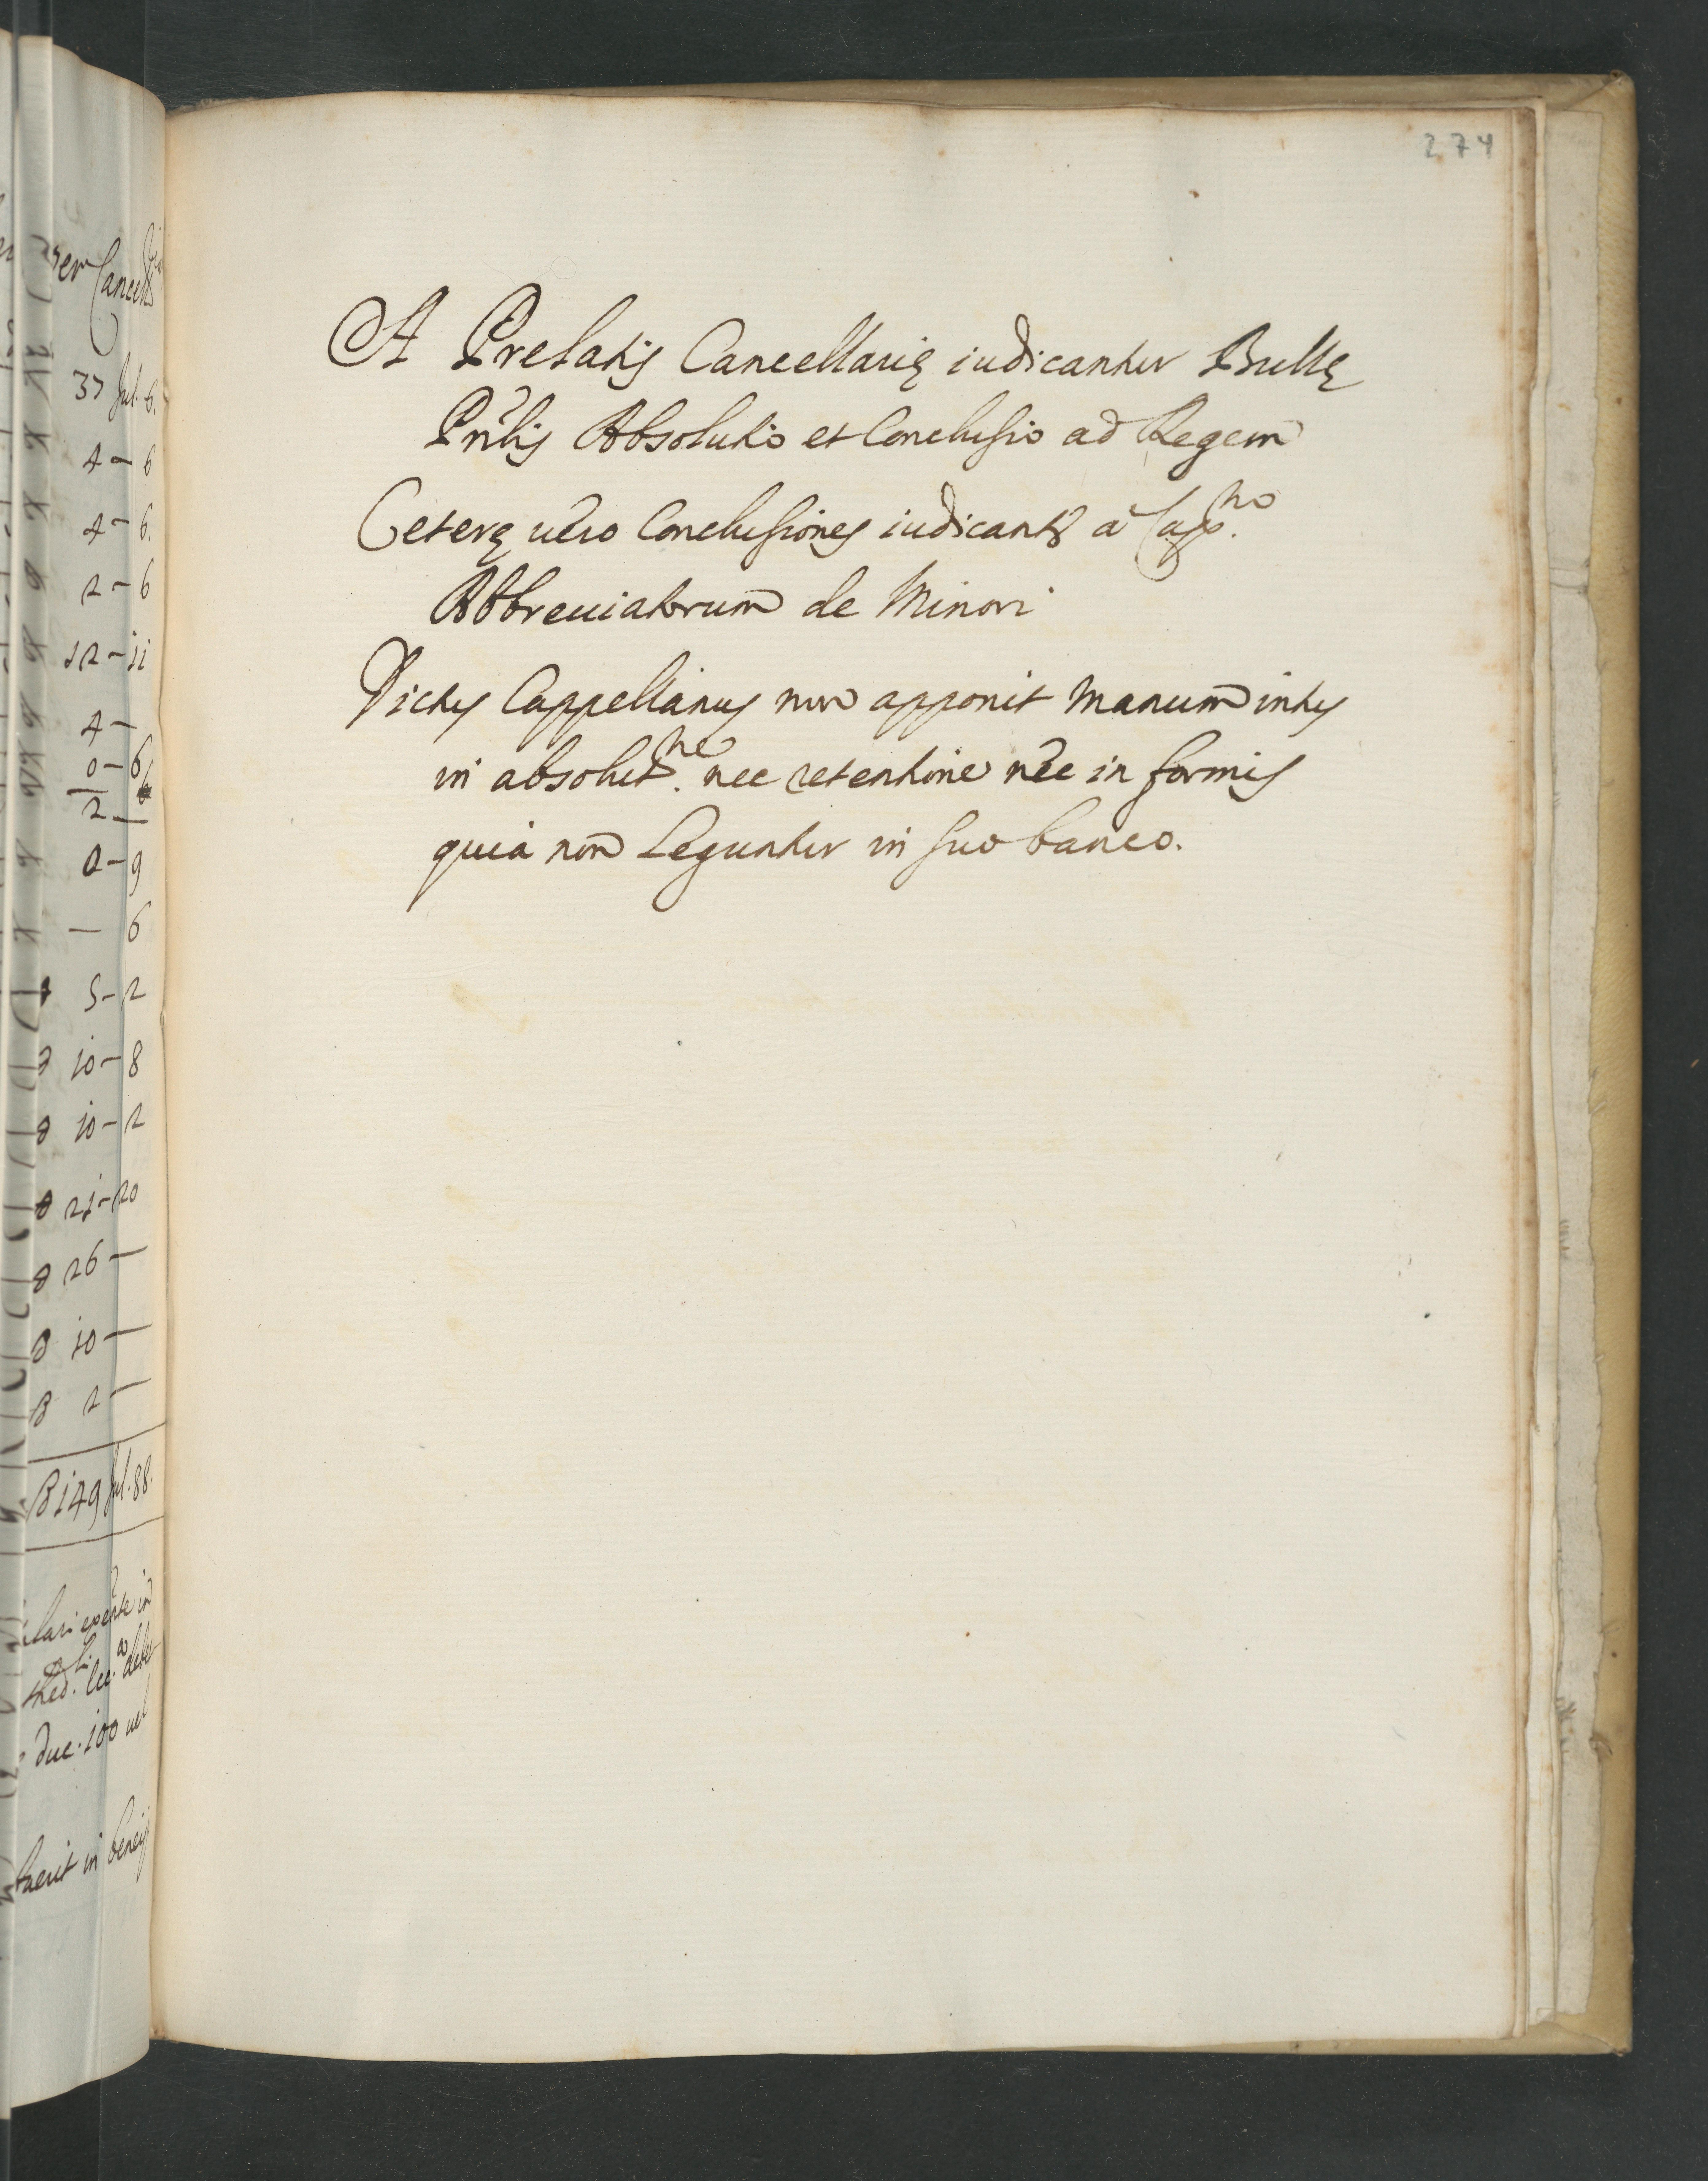 274
A Prelatis Cancellarię iudicantur Bullę
Prñlis Absolutio et Conclusio ad Regem
Ceterę uẽro Conclusiones iudicantr à Capno.
Abbreuiatorum de Minori
Dictus Cappellanus non apponit manum intus
in absolutne. nec retentione nec in formis
quia non Leguntur in suo banco.
37 Jul. 6.
4 - 6
4 - 6.
2 - 6
12 - 11
4 -
0 - 6
2 -
0 - 9
— 6
5 - 2
10 - 8
10 - 2
21 - 20
26 —
10 —
2 —
149 Jul. 88.
duc. 100 uel